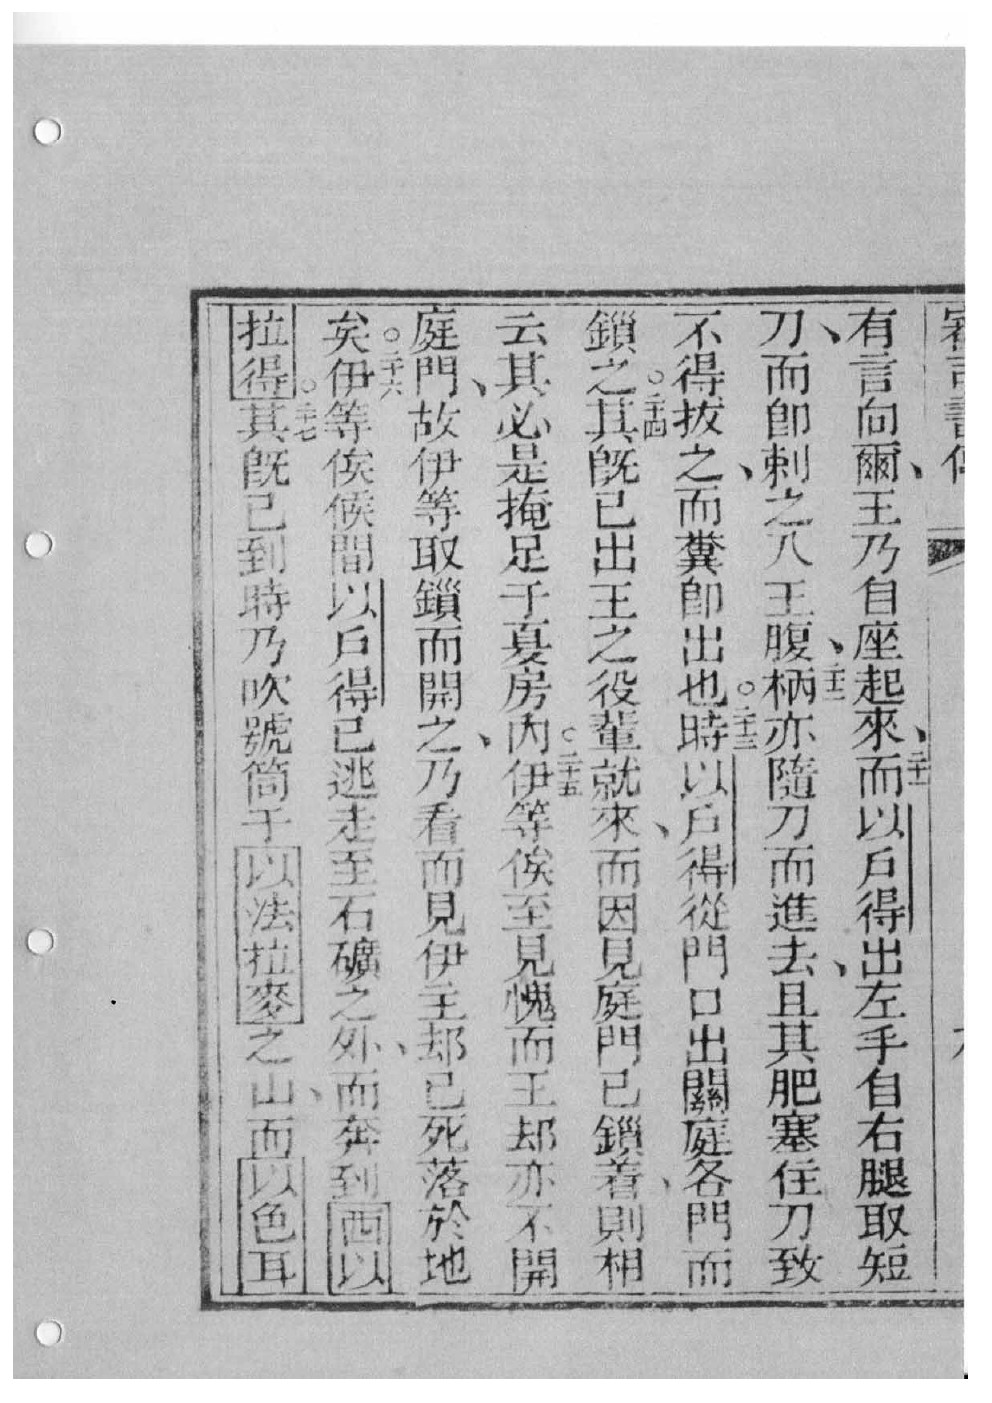 審司書傳
有言向爾王乃自座起來、二十一而以戶得出左手自右腿取短
刀、而即刺之入王腹、二十二柄亦隨刀而進去、且其肥塞住刀致
不得拔之、而糞即出也○二十三時以戶得從門口出關庭各門而
鎖之○二十四其既已出王之役輩就來、而因見庭門已鎖着、則相
云其必是掩足于夏房內○二十五伊等俟至見愧而王却亦不開
庭門、故伊等取鎖而開之、乃看而見伊主却已死落於地
矣○二十六伊等俟候間以戶得已逃走至石礦之外、而奔到西以
拉得○二十七其既已到時乃吹號筒于以法拉麥之山、而以色耳